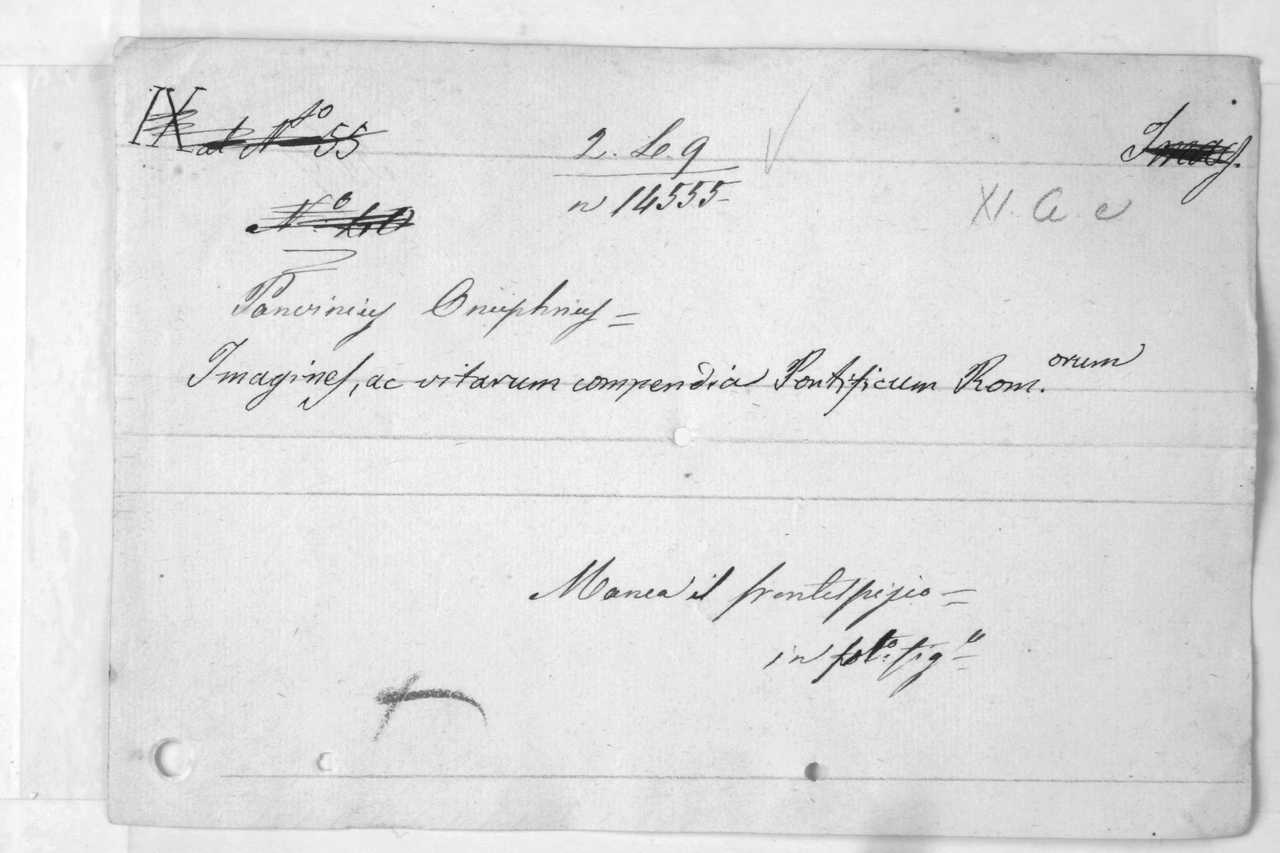 IX
N.º 55
2. L. 9
n 14555
Imag.
XI. a. c
N.º 40
Panvinius Onuphrius =
Imagines, ac vitarum compendia Pontificum Rom.orum
Manca il frontespizio =
in folº. figº